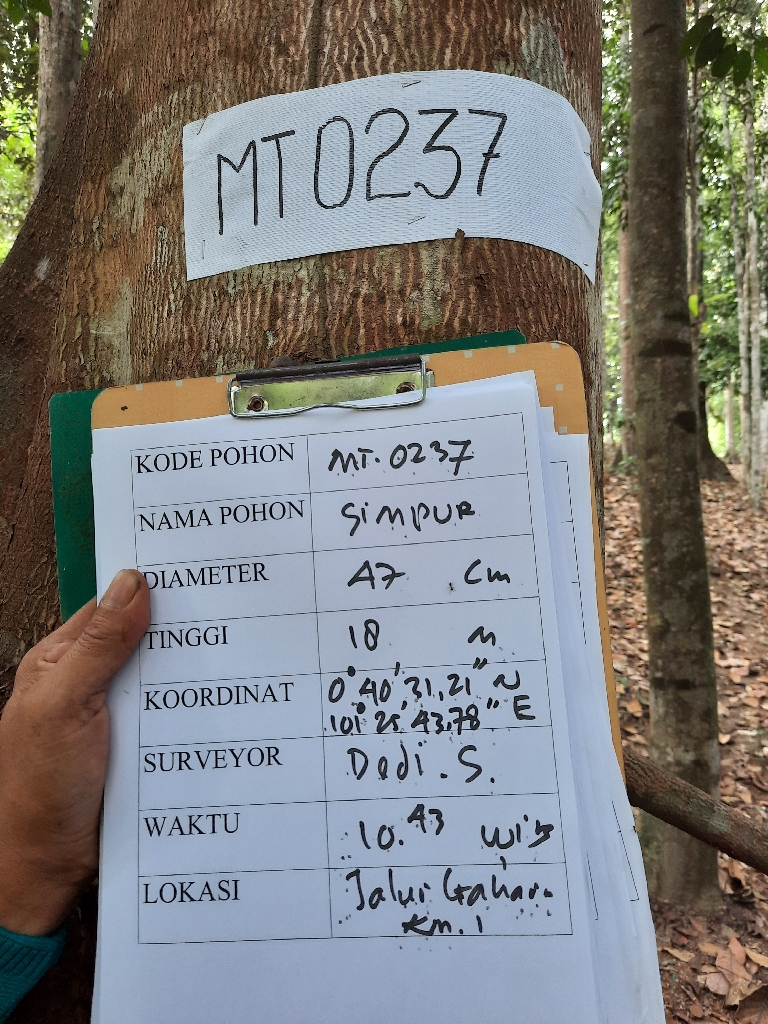 MT0237
KODE POHON MT.0237
NAMA POHON SIMPUR
DIAMETER 47 Cm
TINGGI 18 m
KOORDINAT 0° 40' 31,21" N
101° 25' 43,78" E
SURVEYOR Dedi.S.
WAKTU 10.43 WIB
LOKASI Jalur Gahara
Km. 1